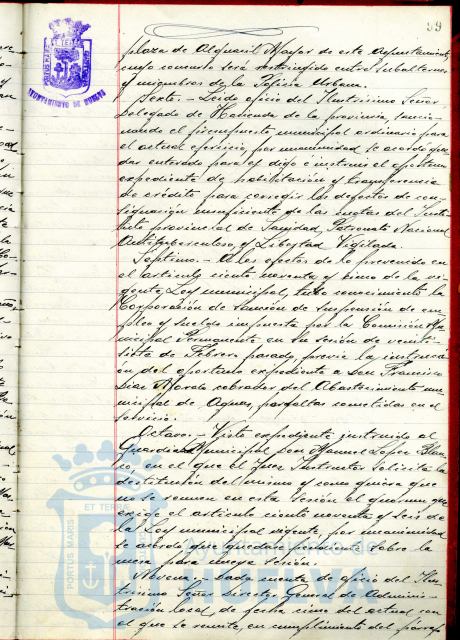 99
plaza de Alguacil Mayor de este Ayuntamiento,
cuyo concurso será restringido entre subalternos
y miembros de la Policia Urbana.
Sexto.- Leido oficio del Ilustrísimo Señor
Delegado de Hacienda de la provincia, sancio-
nando el presupuesto municipal ordinario para
el actual ejercicio, por unanimidad se acordó que-
dar enterado para el digo é instruir el oportuno
expediente de habilitación y transferencia
de crédito para corregir los defectos de con-
signación insuficiente de las cuotas del Insti-
tuto provincial de Sanidad, Patronato Nacional
Antituberculoso, y Libertad Vigilada.
Septimo.- A los efectos de lo prevenido en
el articulo ciento noventa y cinco de la vi-
gente Ley municipal, tuvo conocimiento la
Corporación de sanción de suspensión de em-
pleo y sueldo impuesta por la Comisión Mu-
nicipal Permanente en su sesión de veinti-
siete de Febrero pasado, previa la instrucci-
ón del oportuno expediente a don Francisco
Diaz Morala cobrador del Abastecimiento mu-
nicipal de Aguas, por faltas cometidas en el
servicio.
Octavo.- Visto expediente instruido al
Guardia Municipal don Manuel Lopez Blan-
co, en el que el Juez Instructor solicita la
destitución del mismo y como quiera que
no se reunen en esta sesión el quorum que
exige el articulo ciento noventa y seis de
la Ley municipal vigente por unanimidad
se acordó que quede expediente sobre la
mesa para nueva sesión.
Noveno.- Dada cuenta de oficio del Ilus-
trísimo Señor Director General de Adminis-
tración local, de fecha cinco del actual con
el que se remite, en cumplimiento del párraf-
AYUNTAMIENTO DE HUELVA
PORTUS MARIS ET TERRAE
Ayuntamiento de
HUELVA